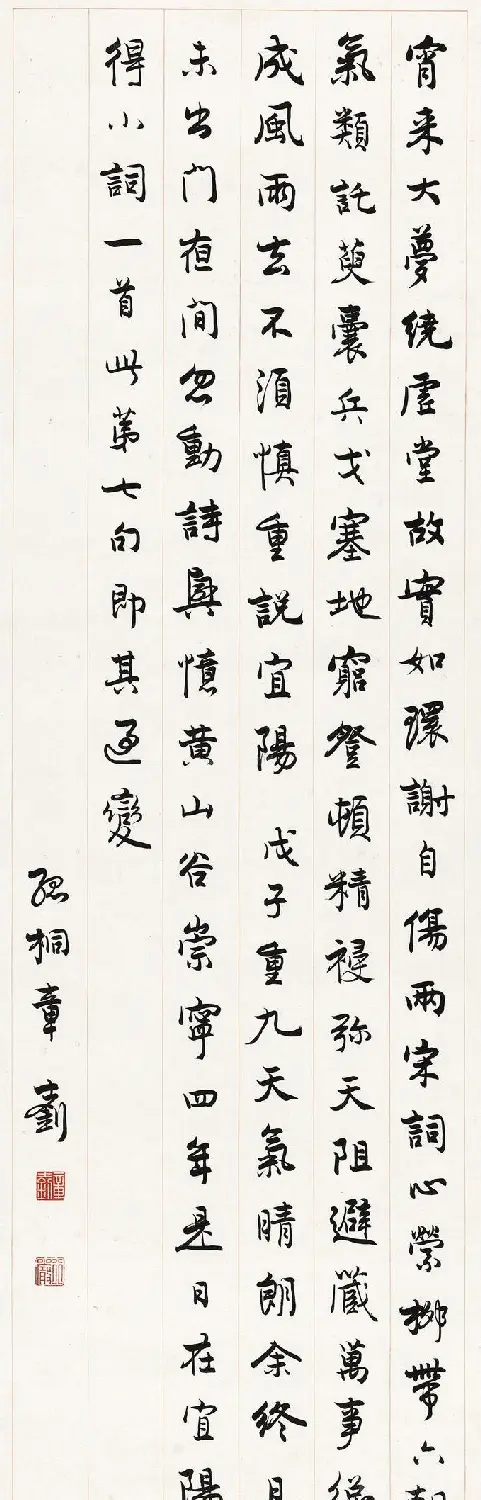 宵来大夢繞虛堂故實如環謝自傷兩宋詞心縈柳帶六朝
氣類託萸囊兵戈塞地窮登頓精祲弥天阻避藏萬事從
成風雨去不須慎重說宜陽 戊子重九天氣晴朗余終日
未出门夜間忽動詩興憶黄山谷崇寧四年是日在宜陽
得小詞一首此第七句即其通變
孤桐章士釗